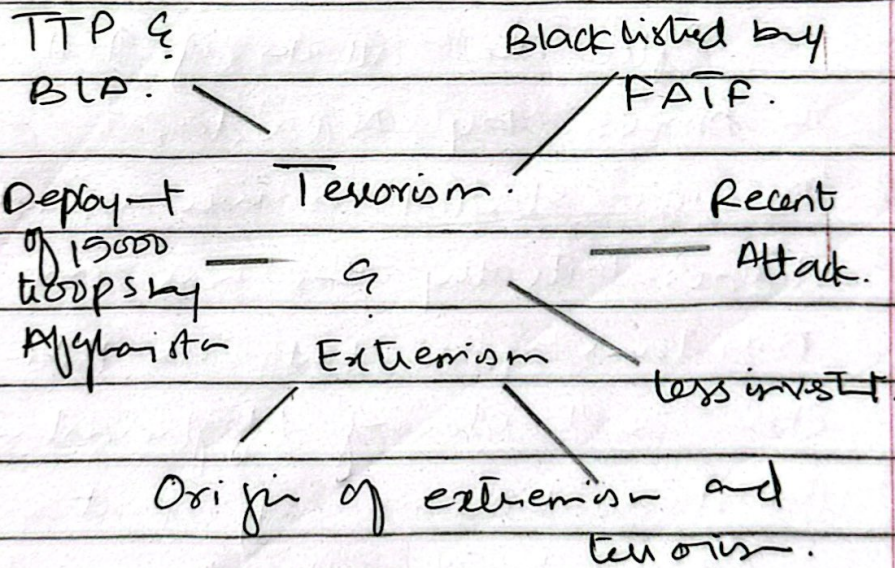 TTP &
BLA.
Blacklisted by
FATF.
Terrorism.
&
Extremism
Deploy-t
of 15000
troops by
Afghanistan
Recent
Attack.
Less invest-t.
Origin of extremism and
terrorism.